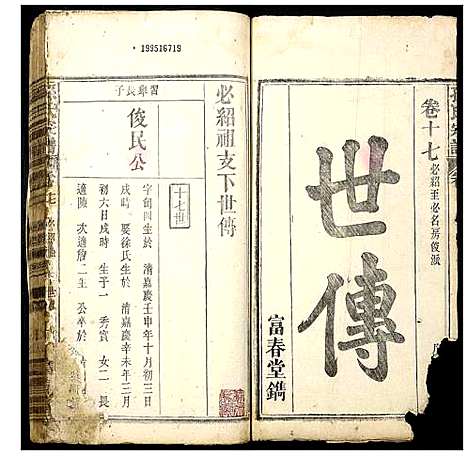 卷十七
必紹至必名房俊派
世傳
富春堂鐫
199516719
必紹祖支下世傳
十七世
習犖長子
俊民公
字旬四生於 清嘉慶壬申年十月初三日
戌時 娶徐氏生於 清嘉慶辛未年三月
初六日戌時 生子一 秀賓 女二 長
適陳 次適詹 二主 公卒於